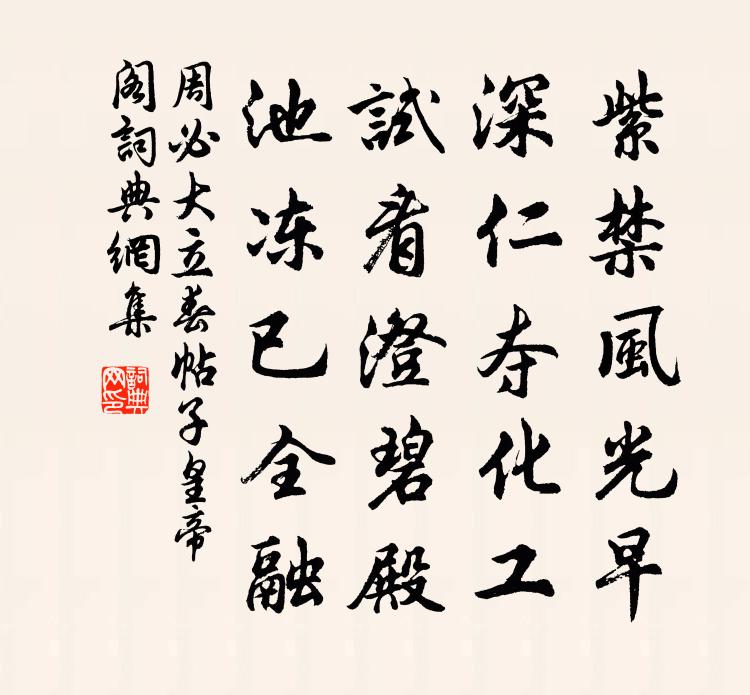 紫禁風光早
深仁夺化工
試看澄碧殿
池冻已全融
周必大立春帖子皇帝
阁詞典網集
詞典网印